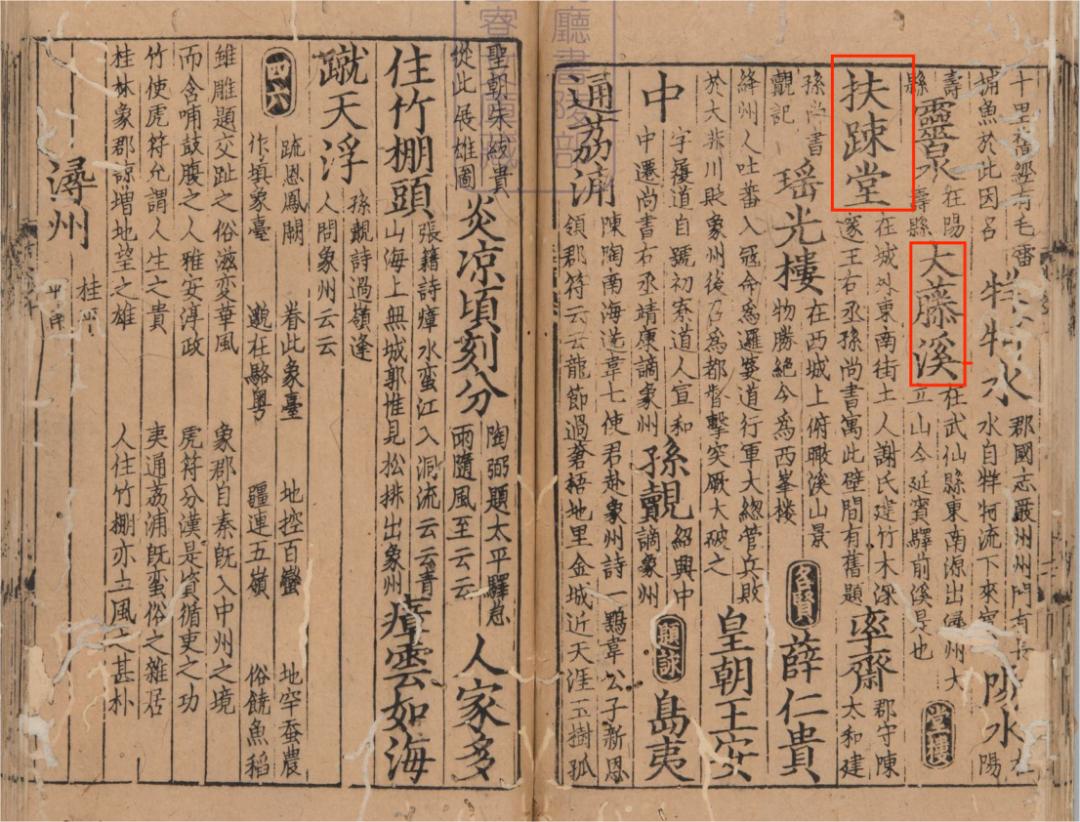 十里相繼有毛番
捕魚於此因名
牂牁水
郡國志嚴州州門有長
水自牂牁流下來賓
陽水
在陽
壽縣
靈泉
在陽
壽縣
大藤溪
在武仙縣東南源出潯州大
立山今延賓驛前溪是也
堂樓
扶踈堂
在城外東南街士人謝氏建竹木深
邃王右丞孫尚書寓此壁間有舊題
坐齋
郡守陳
太和建
孫尚書
覿記
瑤光樓
在西城上俯瞰溪山景
物勝絕今為西峯樓
名賢
薛仁貴
絳州人吐蕃入冦命為邏娑道行軍大緫管兵敗
於大非川貶象州後召為都督擊突厥大破之
皇朝王安
中
字履道自號初寮道人宣和
中遷尚書右丞靖康謫象州
孫覿
紹興中
謫象州
題詠
島夷
通荔浦
陳陶南海送韋七使君赴象州詩一鶚韋公子新恩
領郡符云云龍節過蒼梧地里金城近天涯玉樹孤
聖朝朱紱貴
從此展雄圖
炎凉頃刻分
陶弼題太平驛怱
雨隨風至云云
人家多
住竹棚頭
張籍詩瘴水蛮江入洞流云云青
山海上無城郭惟見松排出象州
瘴雲如海
蹴天浮
孫覿詩過嶺逢
人問象州云云
四六
䟽恩鳳闕 眷此象臺 地控百蠻 地罕蚕農
作填象臺 邈在駱粤 疆連五嶺 俗饒魚稻
雖雕題交趾之俗滋变華風 象郡自秦旣入中州之境
而含哺鼓腹之人雅安淳政 虎符分漢是資循吏之功
竹使虎符允謂人生之貴 夷通荔浦旣蛮俗之雜居
桂林象郡諒增地望之雄 人住竹棚亦土風之甚朴
潯州
桂平
平南